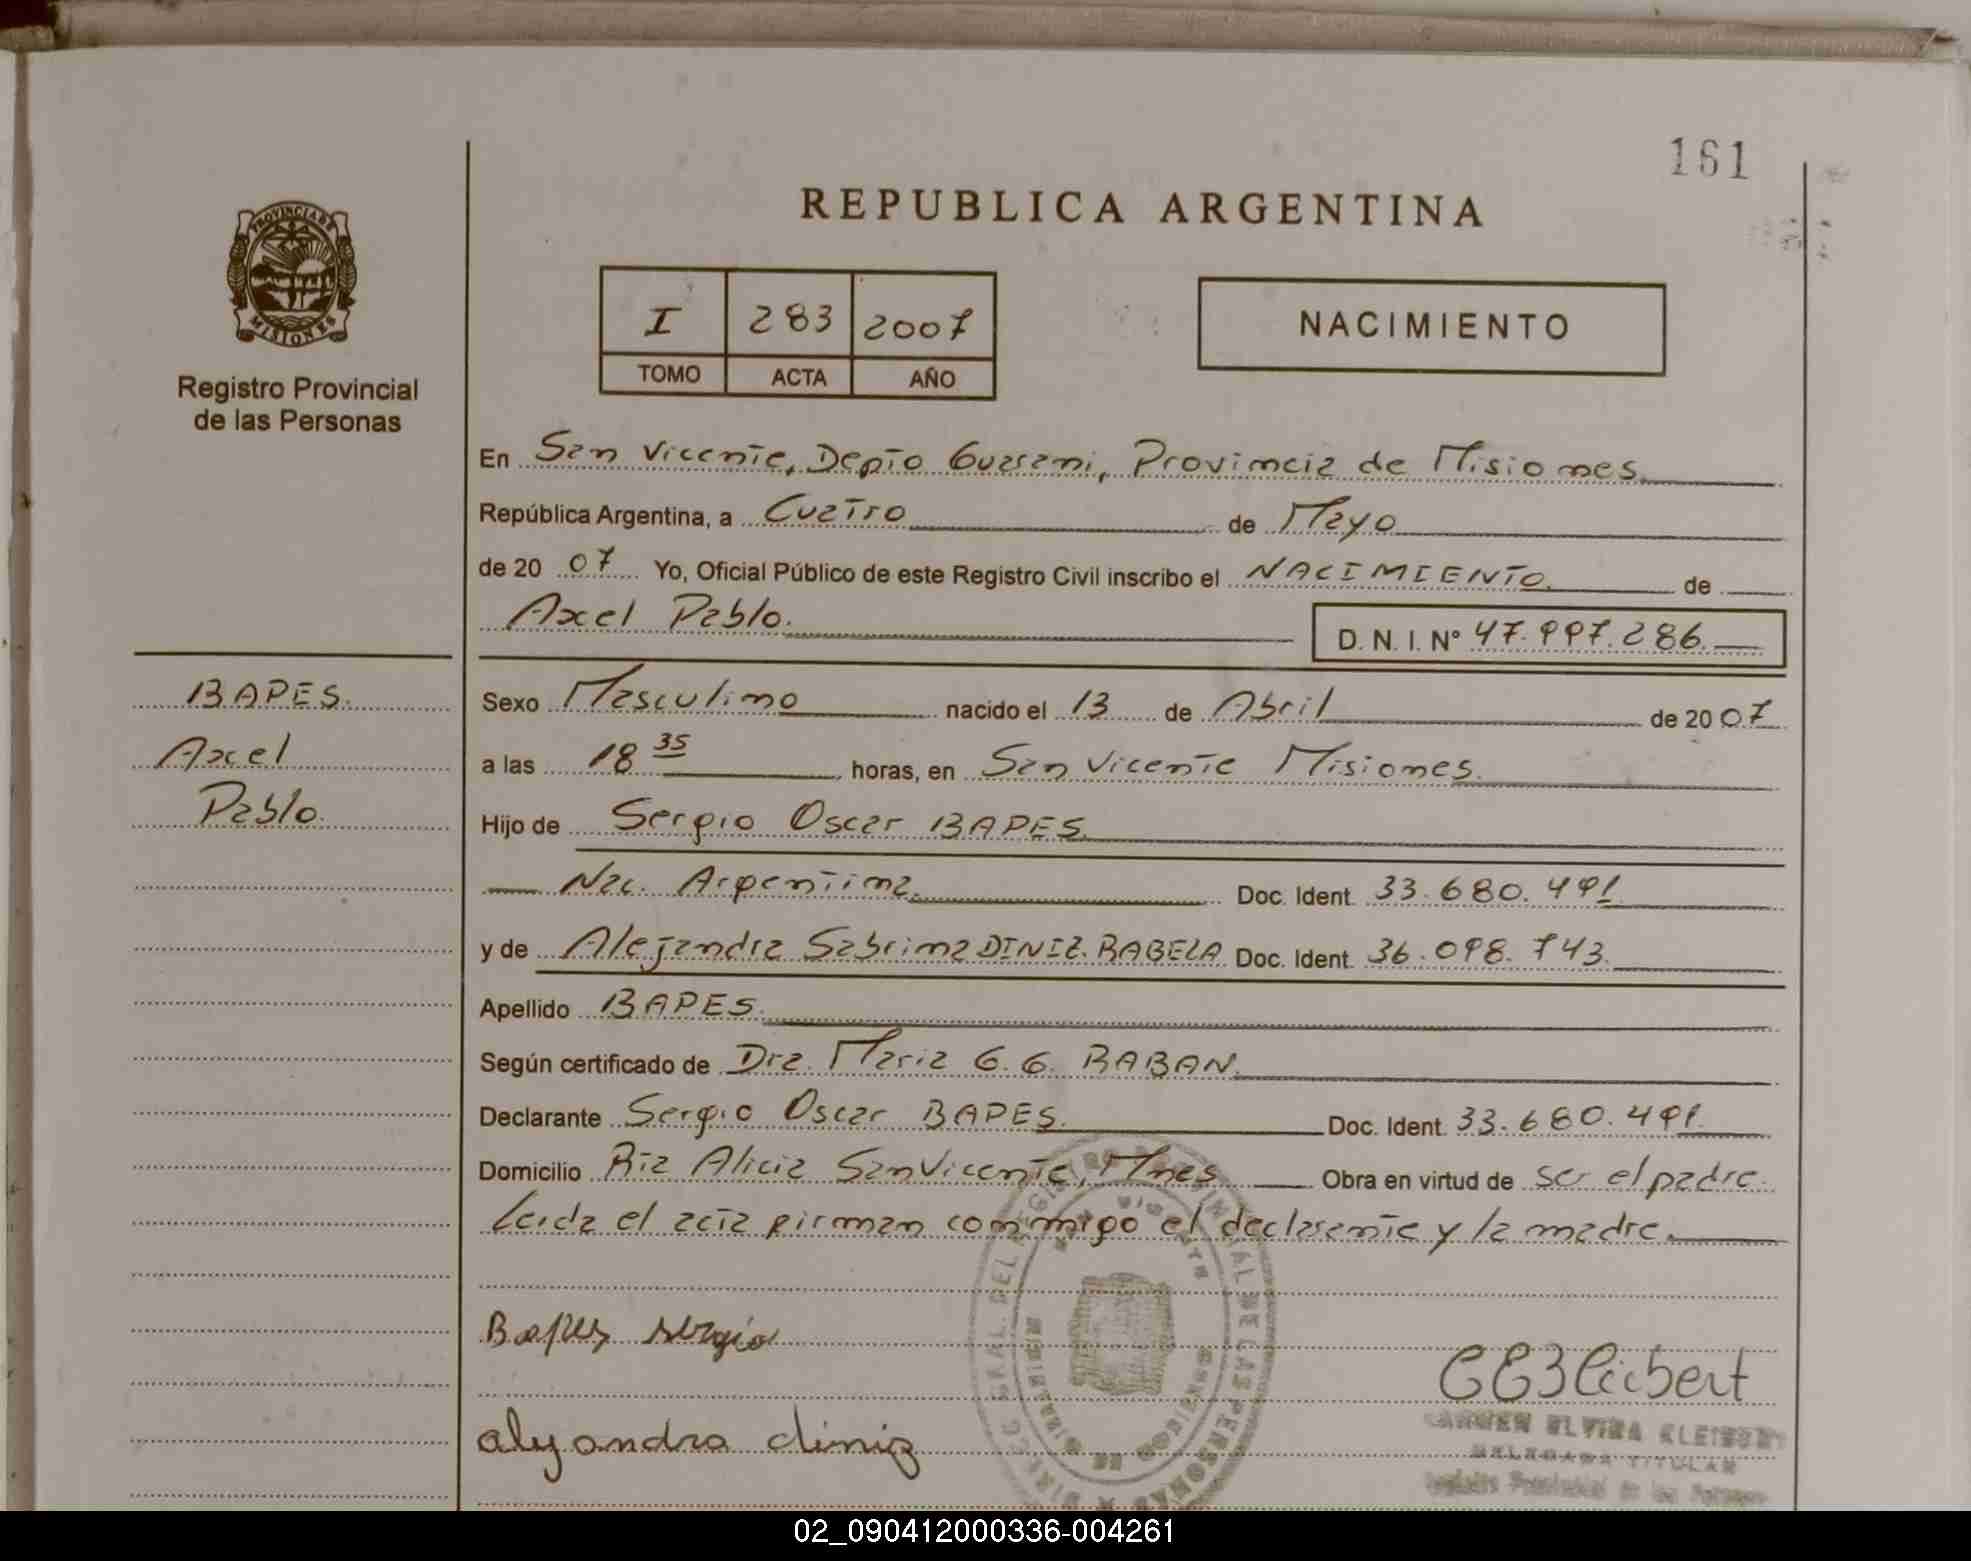 161
REPUBLICA ARGENTINA
PROVINCIA DE
MISIONES
Registro Provincial
de las Personas
I 283 2007
TOMO ACTA AÑO
NACIMIENTO
En San Vicente, Depto Guarani, Provincia de Misiones.
República Argentina, a Cuatro de Mayo
de 20 07 Yo, Oficial Público de este Registro Civil inscribo el NACIMIENTO de
Axel Pablo. D. N. I. N° 47.997.286.
BAPES.
Axel
Pablo.
Sexo Masculino nacido el 13 de Abril de 20 07
a las 18 35 horas, en San Vicente Misiones.
Hijo de Sergio Oscar BAPES.
Nac. Argentina. Doc. Ident. 33.680.491
y de Alejandra Sabrina DINIZ. RABELA Doc. Ident. 36.098.743.
Apellido BAPES.
Según certificado de Dra. Maria G. G. RABAN.
Declarante Sergio Oscar BAPES. Doc. Ident. 33.680.491.
Domicilio Rta Alicia San Vicente, Mnes Obra en virtud de ser el padre.
Leida el acta firman conmigo el declarante y la madre.
Bapes sergio
alejandra diniz
CARMEN ELVIRA KLEIBERT
DELEGADA TITULAR
Registro Provincial de las Personas
02_090412000336-004261